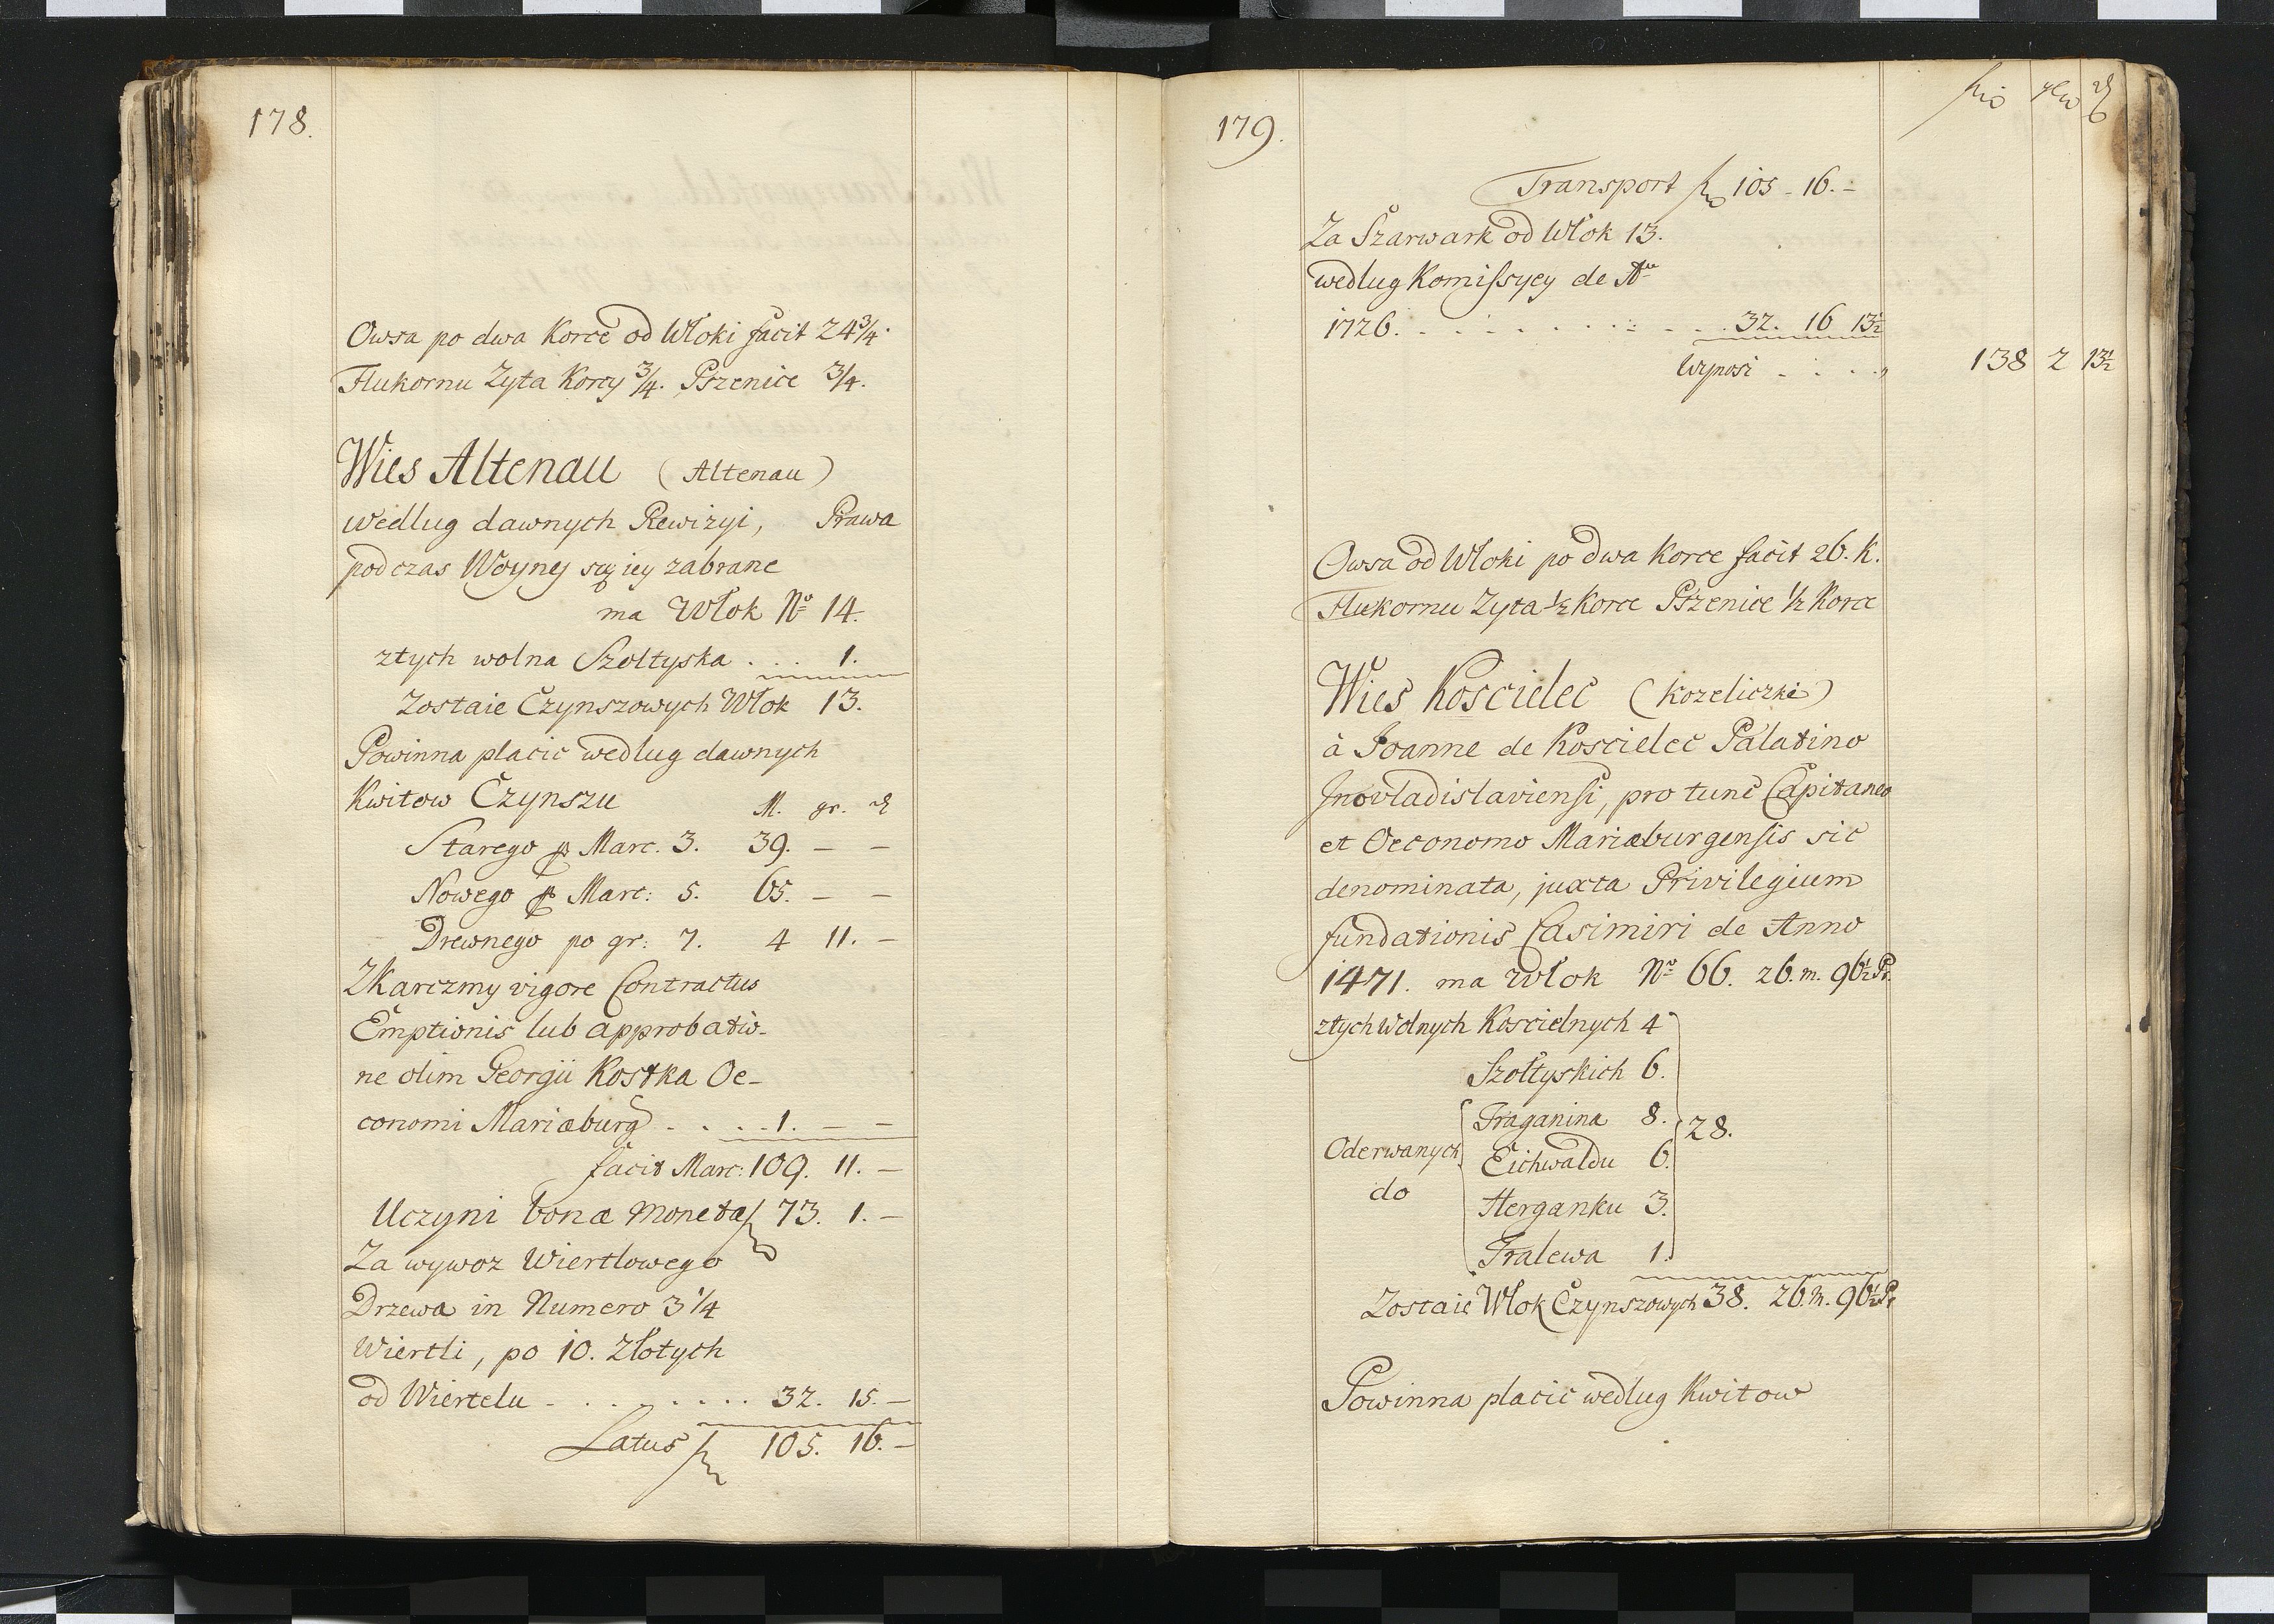 178.
Owsa po dwa Korce od Włoki facit 24 3/4.
Flukornu Zyta Korcy 3/4. Pszenice 3/4.
Wies Altenau (Altenau)
według dawnych Rewizyi, Prawa
podczas Woyny są iey zabrane
ma Włok No 14.
ztych wolna Szoltyska . . . 1.
Zostaie Czynszowych Włok 13.
Powinna placic według dawnych
Kwitow Czynszu M. gr.
Starego Marc. 3. 39. – –
Nowego Marc: 5. 65. – –
Drewnego po gr: 7. 4 11. –
Z Karczmy vigore Contractus
Emptionis lub approbatio-
ne olim Georgii Kostka Oe-
conomi Mariæburg . . . . 1. – –
facit Marc: 109. 11. –
Uczyni bonæ monetæ 73. 1. –
Za wywoz Wiertlowego
Drzewa in Numero 3 1/4
Wiertli, po 10. Złotych
od Wiertelu - . . . . . . . 32. 15. –
Latus 105. 16. –
179.
Transport 105 - 16. –
Za Szarwark od Włok 13.
według Komissyey de Ao
1726. . . . . . . . . . . . 32. 16 13 1/2
Wynosi . . . . 138 2 13 1/2
Owsa od Włoki po dwa Korce facit 26. K.
Flukornu Zyta 1/2 Korce Pszenice 1/2 Korce
Wies Koscielec (Kozeliczki)
à Joanne de Koscielec Palatino
Inovladislaviensi, pro tunc Capitaneo
et Oeconomo Mariæburgensis sic
denominata, juxta Privilegium
fundationis Casimiri de Anno
1471. ma Włok No 66. 26. m. 96 1/2 Pr.
ztych wolnych Koscielnych 4
Szołtyskich 6.
Oderwanych do
Traganina 8.
Eichwaldu 6.
Herganku 3.
Tralewa 1.
28.
Zostaie Włok Czynszowych 38. 26. m. 96 1/2 Pr
Powinna placic według Kwitow